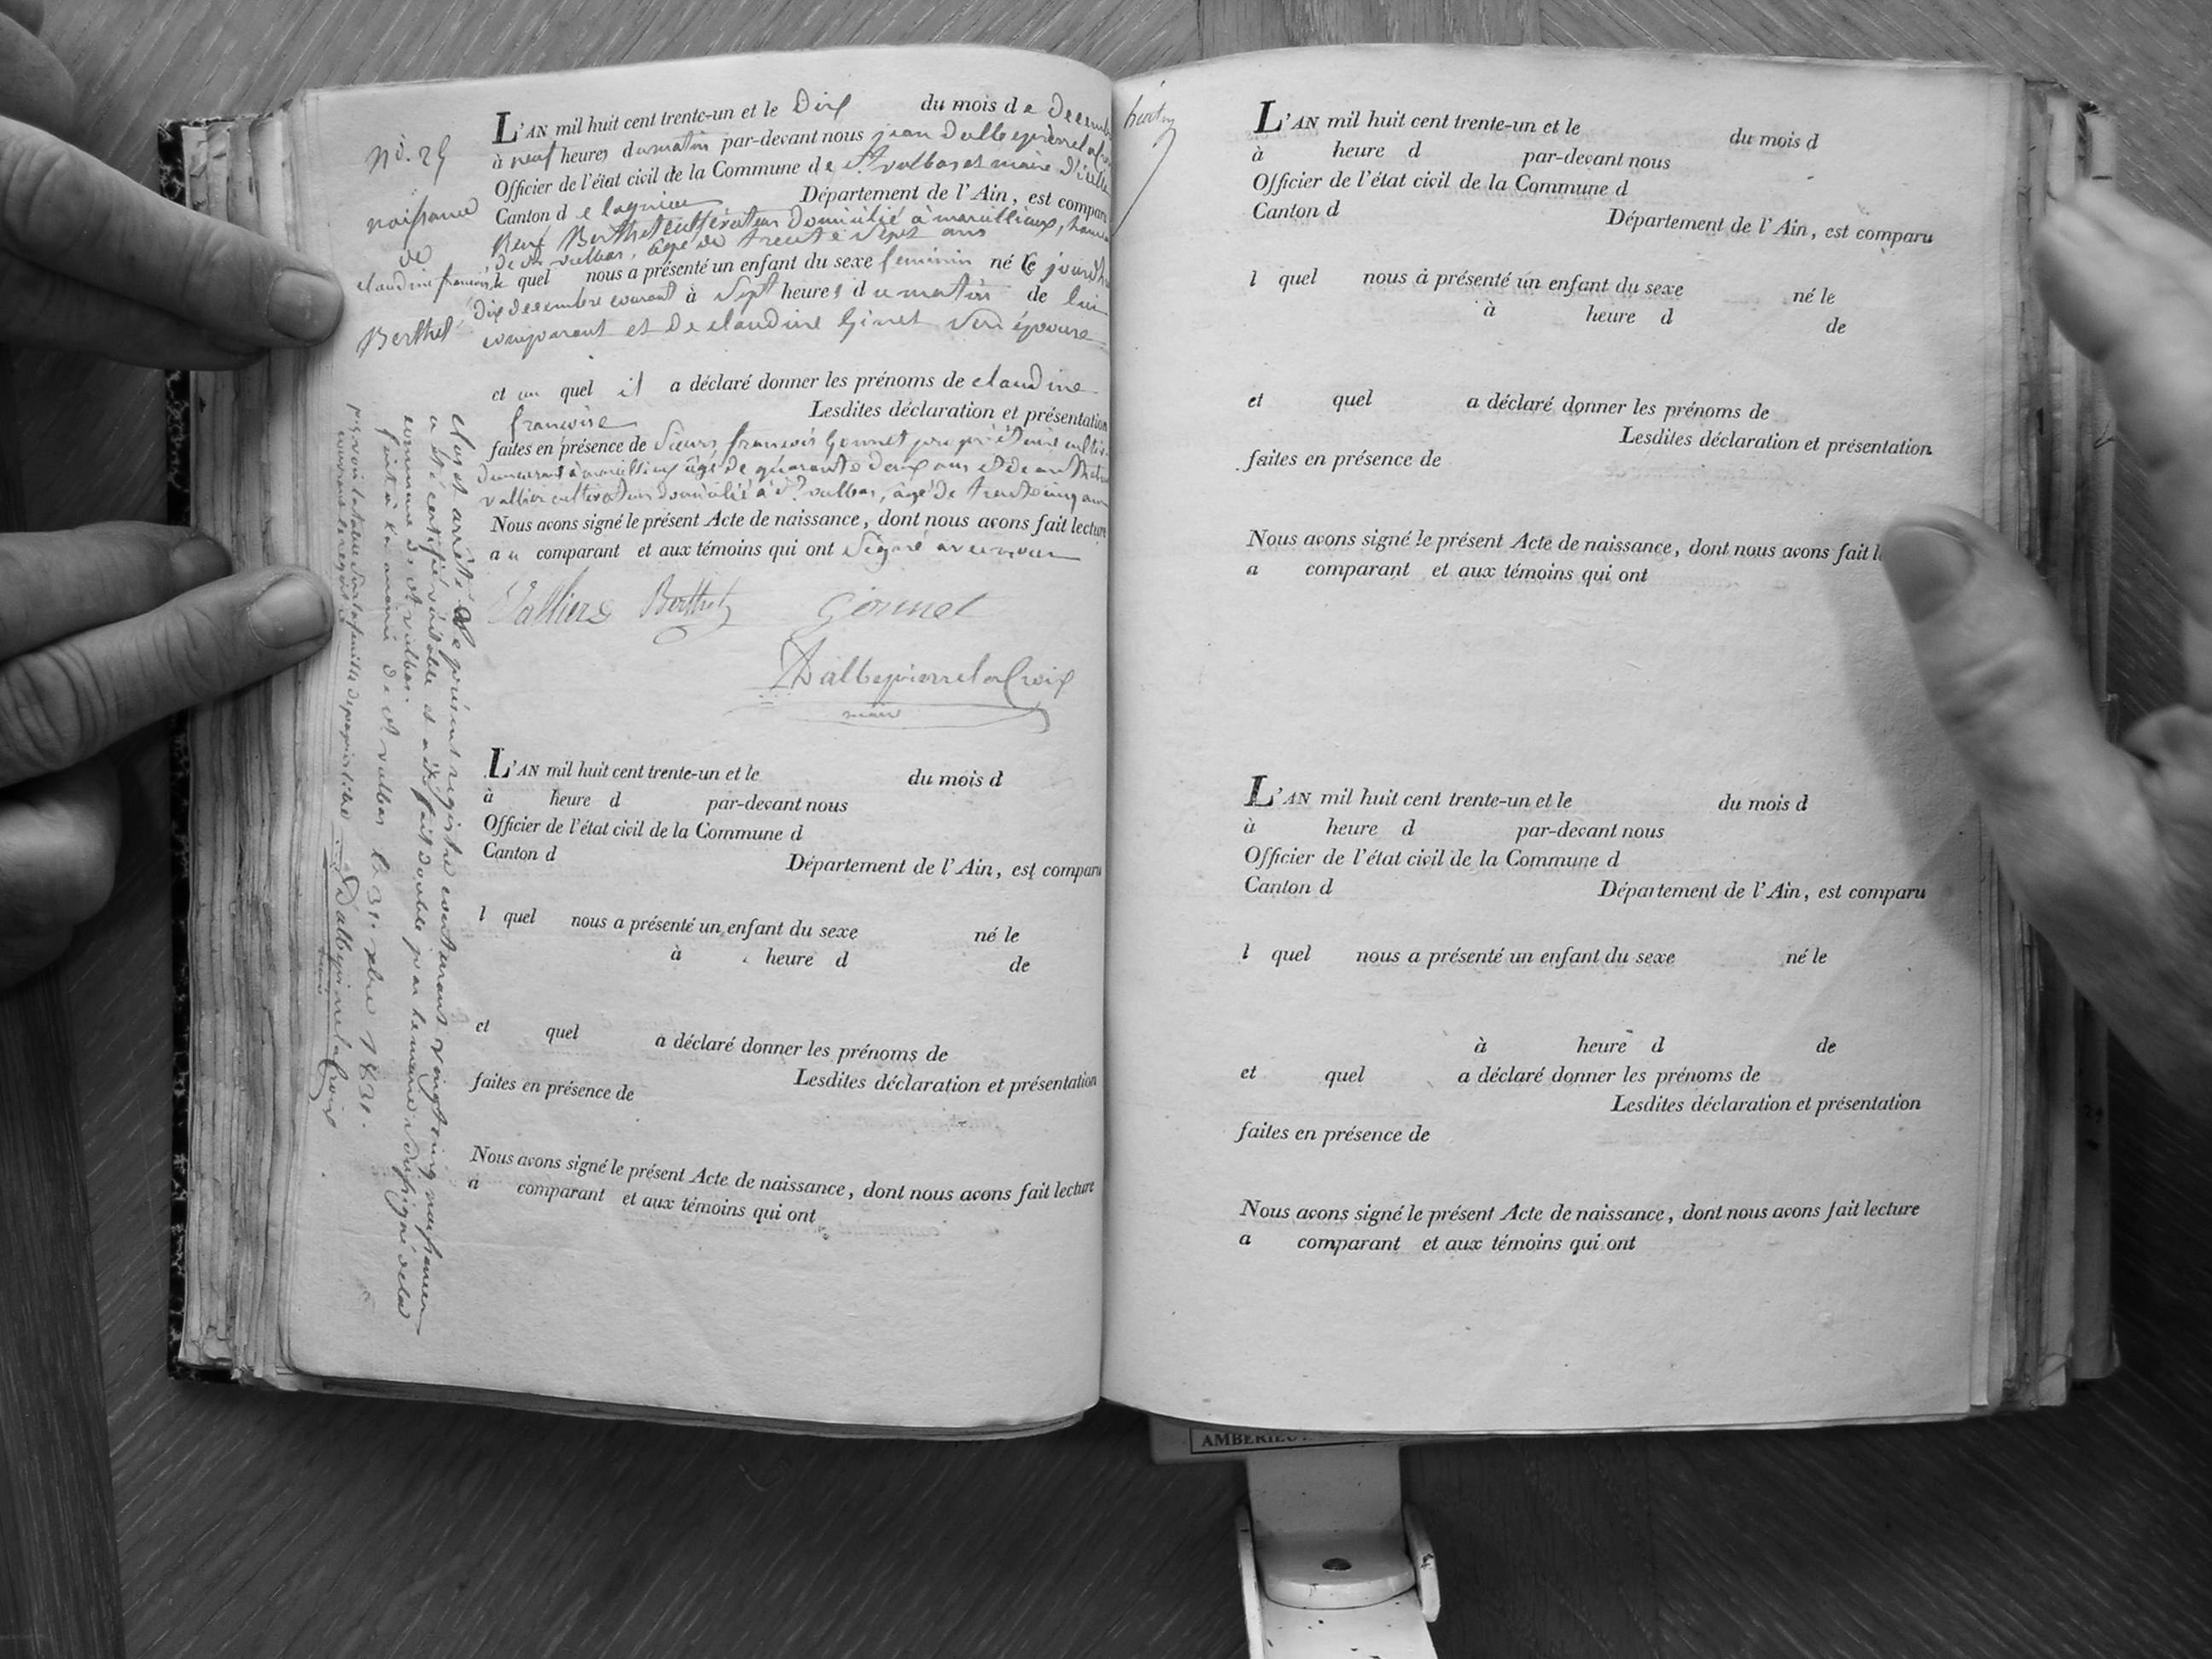 no. 25
naissance
de
claudine françoise
Berthet
L'AN mil huit cent trente-un et le Dix du mois de Decembre
à neuf heures du matin par-devant nous jean Dalbepierrelacroix
Officier de l'état civil de la Commune de St vulbas et maire d'icelle
Canton de lagnieu Département de l'Ain, est comparu
René Berthet cultivateur Domicilié à marcillieux, hameau
de St vulbas, âgé de trente sept ans
le quel nous a présenté un enfant du sexe feminin né le jourd'hui
dix decembre courant à sept heures du matin de lui
comparant et de claudine Ginet son épouse
et au quel il a déclaré donner les prénoms de claudine
francoise Lesdites déclaration et présentation
faites en présence de sieurs francois Gonnet propriétaire cultiv.
demeurant à marcillieux âgé de quarante deux ans et de anthelme
vallier cultivateur domicilié à St vulbas, âgé de trente cinq ans
Nous avons signé le présent Acte de naissance, dont nous avons fait lecture
au comparant et aux témoins qui ont signé avec nous
Valliers Berthet Gonnet
Dalbepierrelacroix
maire
clos et arrêté le présent registre contenant vingt cinq naissances
a été certifié véritable et a été fait double par le maire soussigné de la
commune de St vulbas.
fait à la mairie de St vulbas le 31. xbre 1831.
Dalbepierrelacroix
maire
L'AN mil huit cent trente-un et le du mois d
à heure d par-devant nous
Officier de l'état civil de la Commune d
Canton d Département de l'Ain, est comparu
l quel nous a présenté un enfant du sexe né le
à heure d de
et quel a déclaré donner les prénoms de
Lesdites déclaration et présentation
faites en présence de
Nous avons signé le présent Acte de naissance, dont nous avons fait lecture
a comparant et aux témoins qui ont
L'AN mil huit cent trente-un et le du mois d
à heure d par-devant nous
Officier de l'état civil de la Commune d
Canton d Département de l'Ain, est comparu
l quel nous à présenté un enfant du sexe né le
à heure d de
et quel a déclaré donner les prénoms de
Lesdites déclaration et présentation
faites en présence de
Nous avons signé le présent Acte de naissance, dont nous avons fait l
a comparant et aux témoins qui ont
L'AN mil huit cent trente-un et le du mois d
à heure d par-devant nous
Officier de l'état civil de la Commune d
Canton d Département de l'Ain, est comparu
l quel nous a présenté un enfant du sexe né le
à heure d de
et quel a déclaré donner les prénoms de
Lesdites déclaration et présentation
faites en présence de
Nous avons signé le présent Acte de naissance, dont nous avons fait lecture
a comparant et aux témoins qui ont